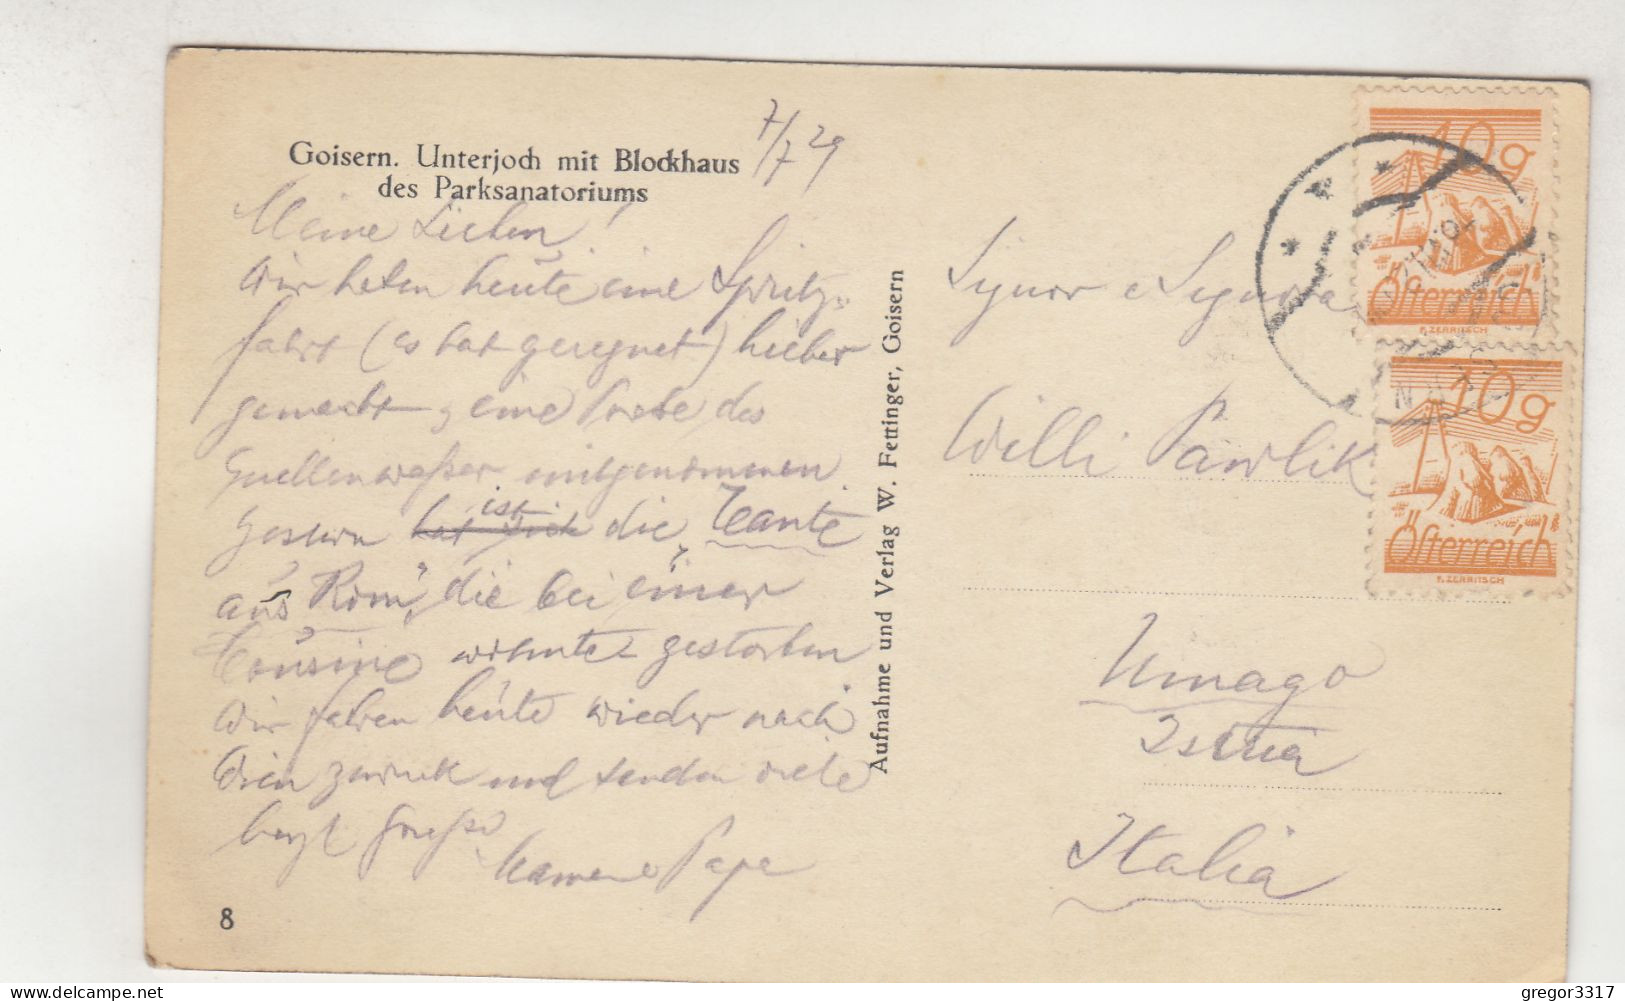 Goisern. Unterjoch mit Blockhaus
des Parksanatoriums
7/7 29
Meine Lieben!
Wir haben heute eine Spritz-
fahrt (es hat geregnet) hieher
gemacht, eine Probe des
Quellenwaßer mitgenommen.
Gestern hat sich ist die Tante
aus Rom, die bei einer
Cousine wohnte gestorben
Wir fahren heute wieder nach
Wien zurück und senden viele
herzl Grüße
Mama e Papa
8
Aufnahme und Verlag W. Fettinger, Goisern
Signor e Signora
Willi Pawlik
Umago
Istria
Italia
10g
Österreich
F. ZERRITSCH
10g
Österreich
F. ZERRITSCH
gregor3317